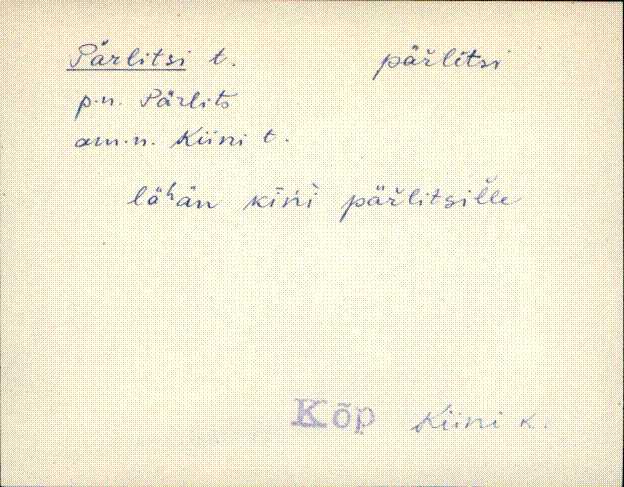 Pärlitsi t. pär̆litsi
p.n. Pärlits
am.n. Kiini t.
läʰän kīńì pär̆litsil̆le
Kõp Kiini k.